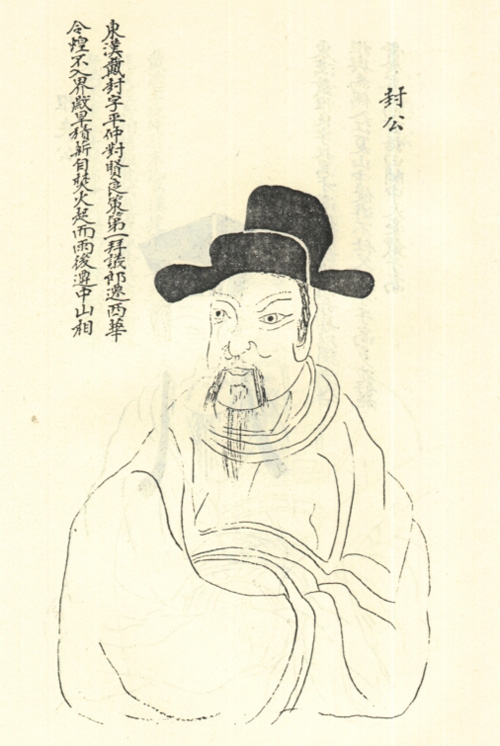 封公
東漢戴封字平仲對賢良策第一拜議郎遷西華
令煌不入界歲旱積薪自焚火起而雨後遷中山相